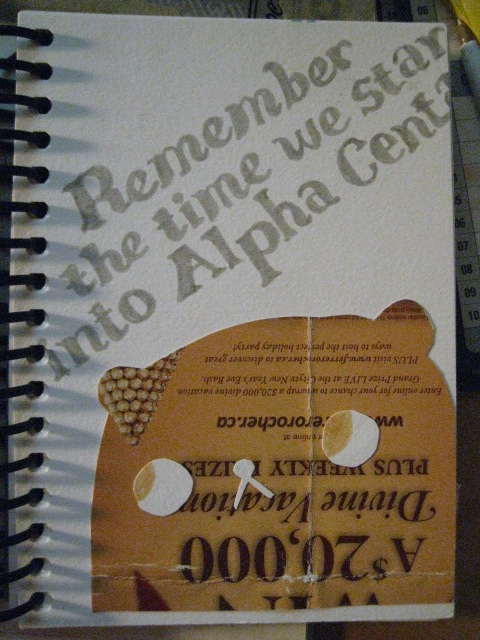 Remember
the time we star
into Alpha Centa
ways to best the perfect holiday party!
PLUS visit www.ferrerorocher.ca to discover great
Grand Prize LIVE at the Citytv New Year's Eve Bash.
Enter online for your chance to unwrap a $20,000 divine vacation
www. erocher.ca
at
PLUS WEEKLY IZES
Divine Vacation
A $20,000
WIN
06
07
08
09
10